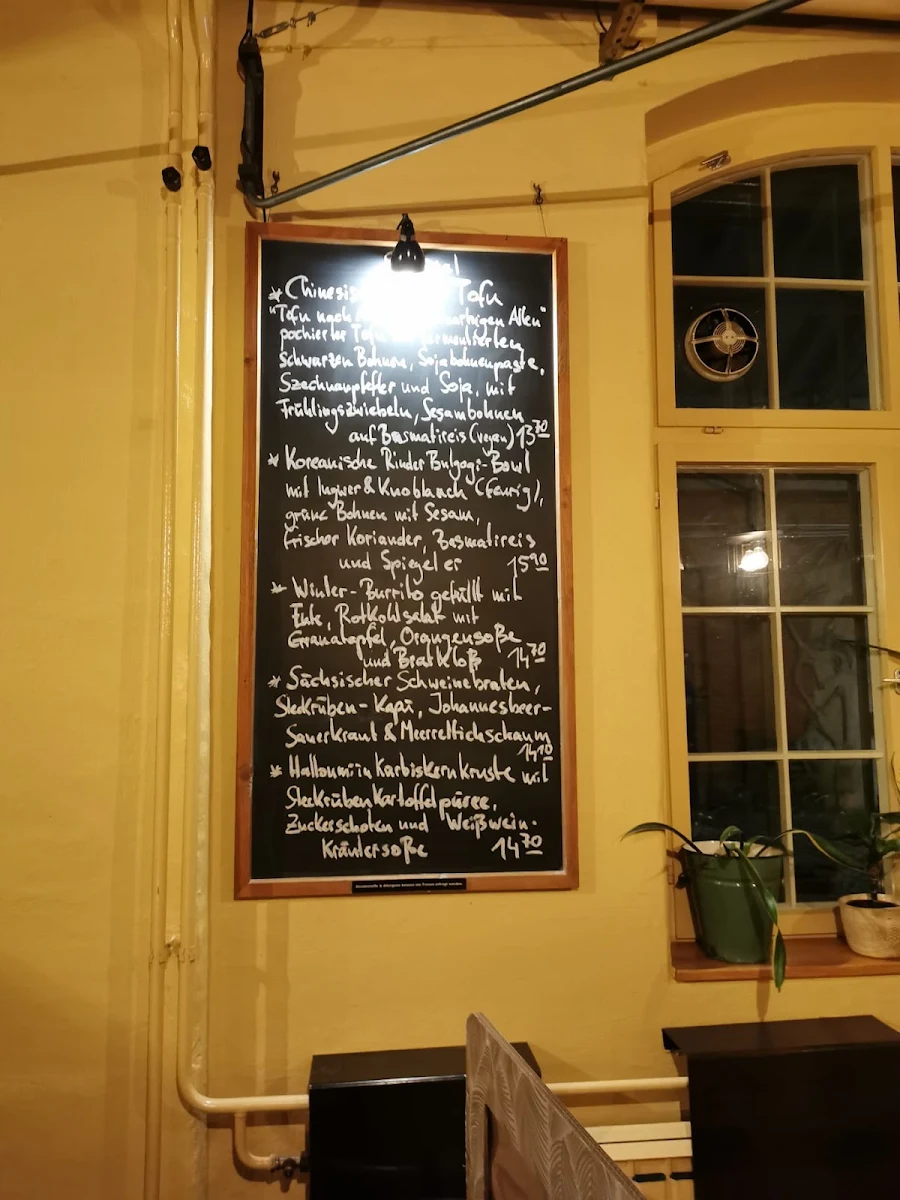 * Chinesis Tofu
"Tofu nach artigen Alten"
pochierter Tofu
schwarzen Bohnen, Sojabohnenpaste,
Szechuanpfeffer und Soja, mit
Frühlingszwiebeln, Sesambohnen
auf Basmatireis (vegan) 13 70
* Koreanische Rinder Bulgogi-Bowl
mit Ingwer & Knoblauch (feurig),
grüne Bohnen mit Sesam,
frischer Koriander, Basmatireis
und Spiegelei 15 90
* Winter-Burrito gefüllt mit
Ente, Rotkohlsalat mit
Granatapfel, Orangensoße
und Bratkloß 14 70
* Sächsischer Schweinebraten,
Steckrüben-Kapü, Johannesbeer-
Sauerkraut & Meerrettichschaum
14 10
* Halloumi in Kürbiskernkruste mit
Steckrüben Kartoffelpüree,
Zuckerschoten und Weißwein-
Kräutersoße 14 70